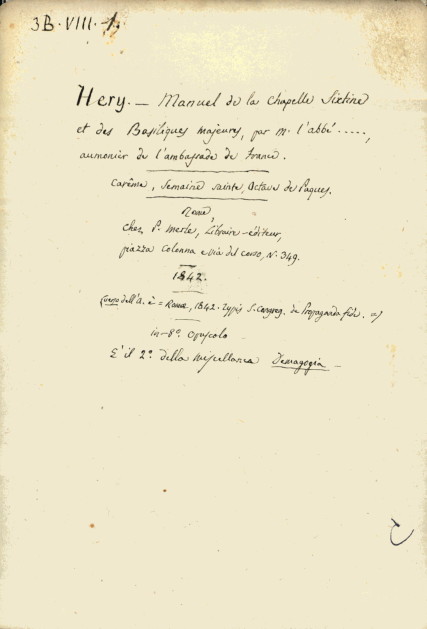 3B. VIII. 1.
Hery. — Manuel de la Chapelle Sixtine
et des Basiliques majeures, par Mr. l'abbé .....,
aumonier de l'ambassade de France.
Carême, Semaine sainte, Octave de Paques.
Rome,
chez P. Merle, Libraire-éditeur,
piazza Colonna e via del corso, N. 349.
1842.
dell'A. è = Romae, 1842. Typis S. Congreg. de Propaganda fide. =)
in-8° opuscolo
E' il 2° della miscellanea Demagogia —